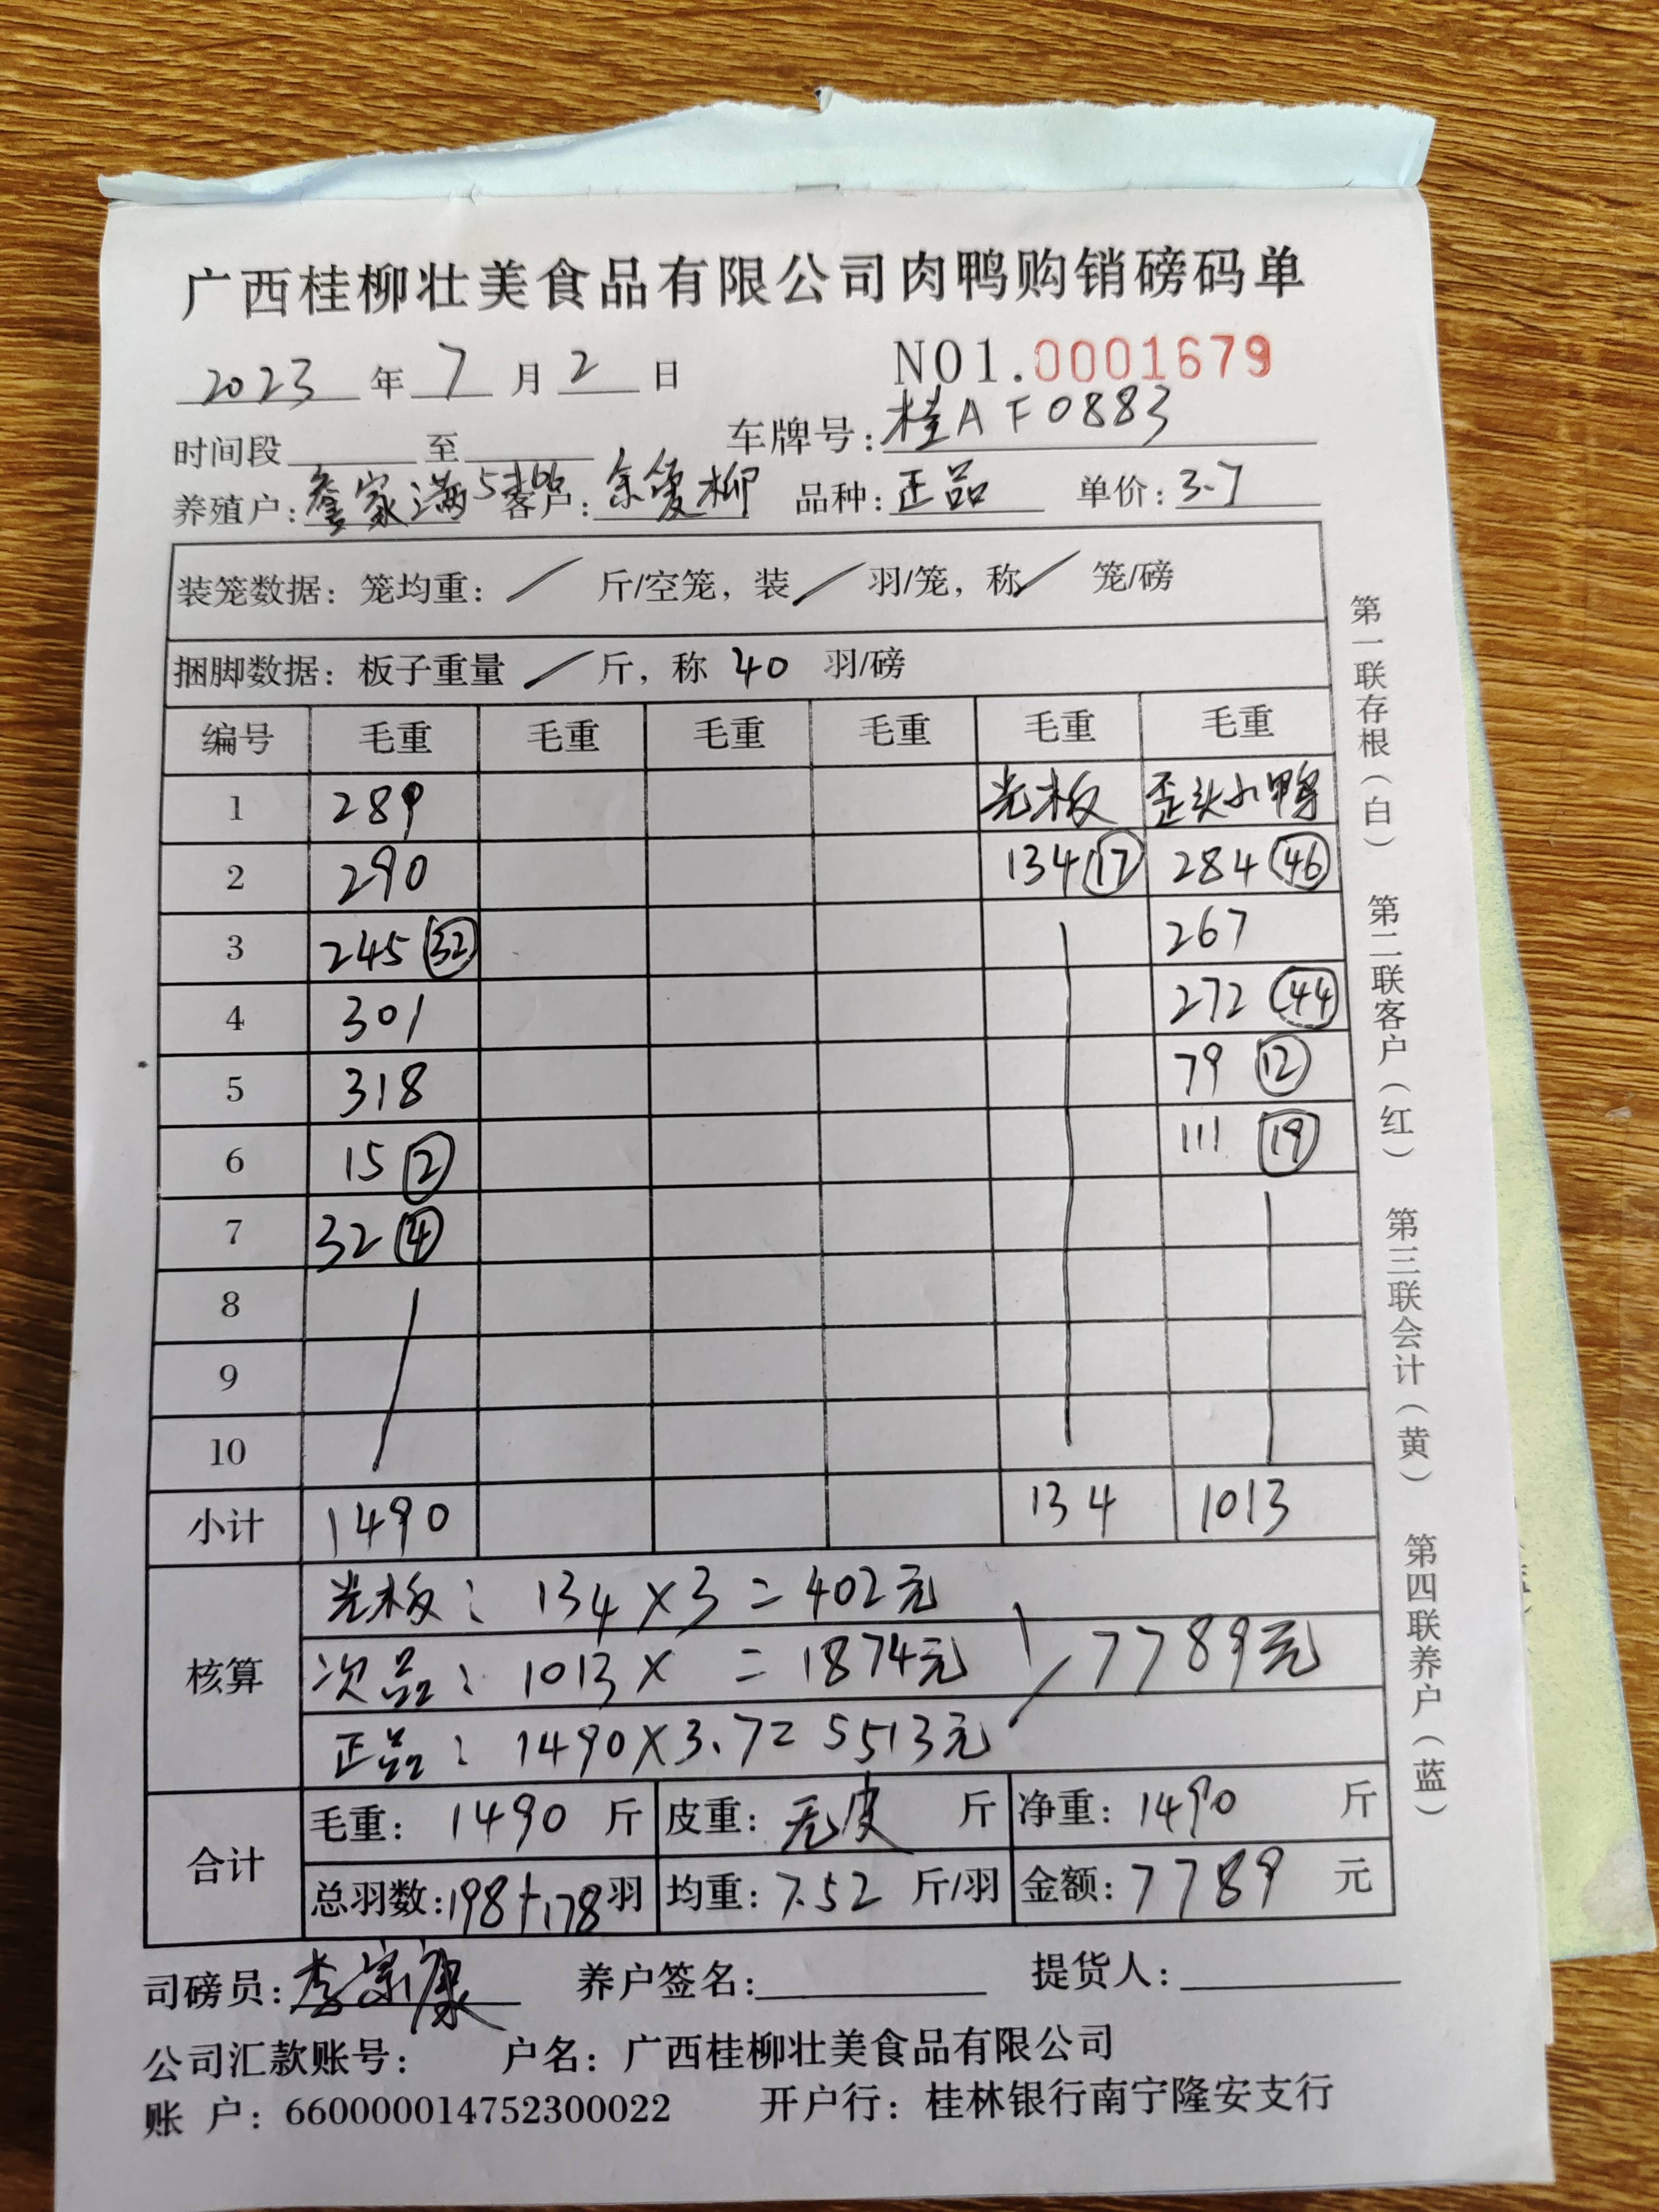 广西桂柳壮美食品有限公司肉鸭购销磅码单
2023 年 7 月 2 日 NO1.0001679
时间段 至 车牌号: 桂AF0883
养殖户: 家满5# 客户: 余爱柳 品种: 正品 单价: 3.7
装笼数据: 笼均重: / 斤/空笼, 装 / 羽/笼, 称 / 笼/磅
捆脚数据: 板子重量 / 斤, 称 40 羽/磅
编号 毛重 毛重 毛重 毛重 毛重 毛重
1 289 光板 歪头小鸭
2 290 134 17 284 46
3 245 32 267
4 301 272 44
5 318 79 12
6 15 2 111 19
7 32 4
8
9
10
小计 1490 134 1013
核算
光板: 134×3=402元
次品: 1013× =1874元 7789元
正品: 1490×3.7=5513元
合计
毛重: 1490 斤 皮重: 无皮 斤 净重: 1490 斤
总羽数: 198+178羽 均重: 7.52 斤/羽 金额: 7789 元
司磅员: 李宗康 养户签名: 提货人:
公司汇款账号: 户名: 广西桂柳壮美食品有限公司
账 户: 660000014752300022 开户行: 桂林银行南宁隆安支行
第一联存根(白) 第二联客户(红) 第三联会计(黄) 第四联养户(蓝)